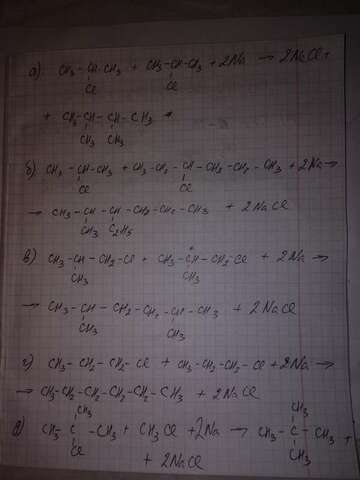 а) CH₃ - CH - CH₃ + CH₃ - CH - CH₃ + 2Na → 2NaCl +
Cl Cl
+ CH₃ - CH - CH - CH₃
CH₃ CH₃
б) CH₃ - CH - CH₃ + CH₃ - CH₂ - CH - CH₂ - CH₂ - CH₃ + 2Na →
Cl Cl
→ CH₃ - CH - CH - CH₂ - CH₂ - CH₃ + 2NaCl
CH₃ C₂H₅
в) CH₃ - CH - CH₂ - Cl + CH₃ - CH - CH₂ - Cl + 2Na →
CH₃ CH₃
→ CH₃ - CH - CH₂ - CH₂ - CH - CH₃ + 2NaCl
CH₃ CH₃
г) CH₃ - CH₂ - CH₂ - Cl + CH₃ - CH₂ - CH₂ - Cl + 2Na →
→ CH₃ - CH₂ - CH₂ - CH₂ - CH₂ - CH₃ + 2NaCl
CH₃ CH₃
д) CH₃ - C - CH₃ + CH₃Cl + 2Na → CH₃ - C - CH₃ +
Cl CH₃
+ 2NaCl